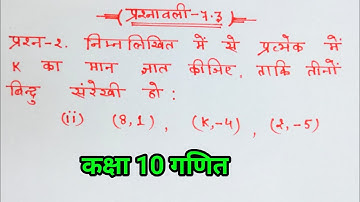 प्रश्नावली-7.3
प्रश्न-2. निम्नलिखित में से प्रत्येक में
K का मान ज्ञात कीजिए, ताकि तीनों
बिन्दु संरेखी हो :
(ii) (8,1) , (K,-4) , (2,-5)
कक्षा 10 गणित